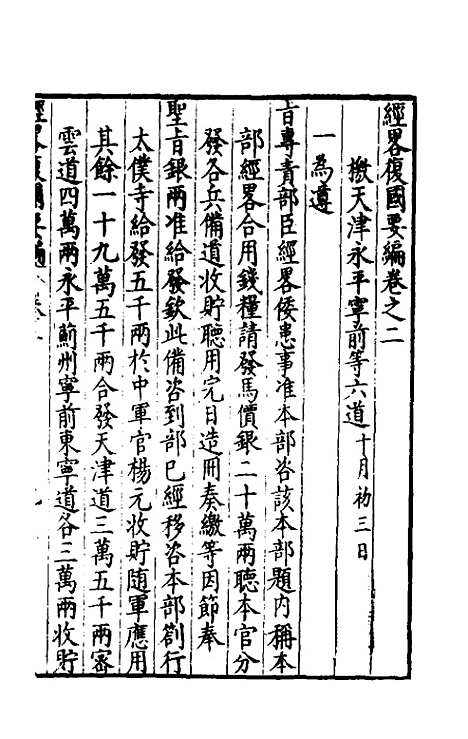 經畧復國要編卷之二
檄天津永平寧前等六道十月初三日
一爲遵
旨專責部臣經畧倭患事准本部咨該本部題内稱本
部經畧合用錢糧請發馬價銀二十萬兩聽本官分
發各兵備道收貯聽用完日造冊奏繳等因節奉
聖旨銀兩准給發欽此備咨到部已經移咨本部劄行
太僕寺給發五千兩於中軍官楊元收貯隨軍應用
其餘一十九萬五千兩合發天津道三萬五千兩密
雲道四萬兩永平薊州寧前東寧道各三萬兩收貯